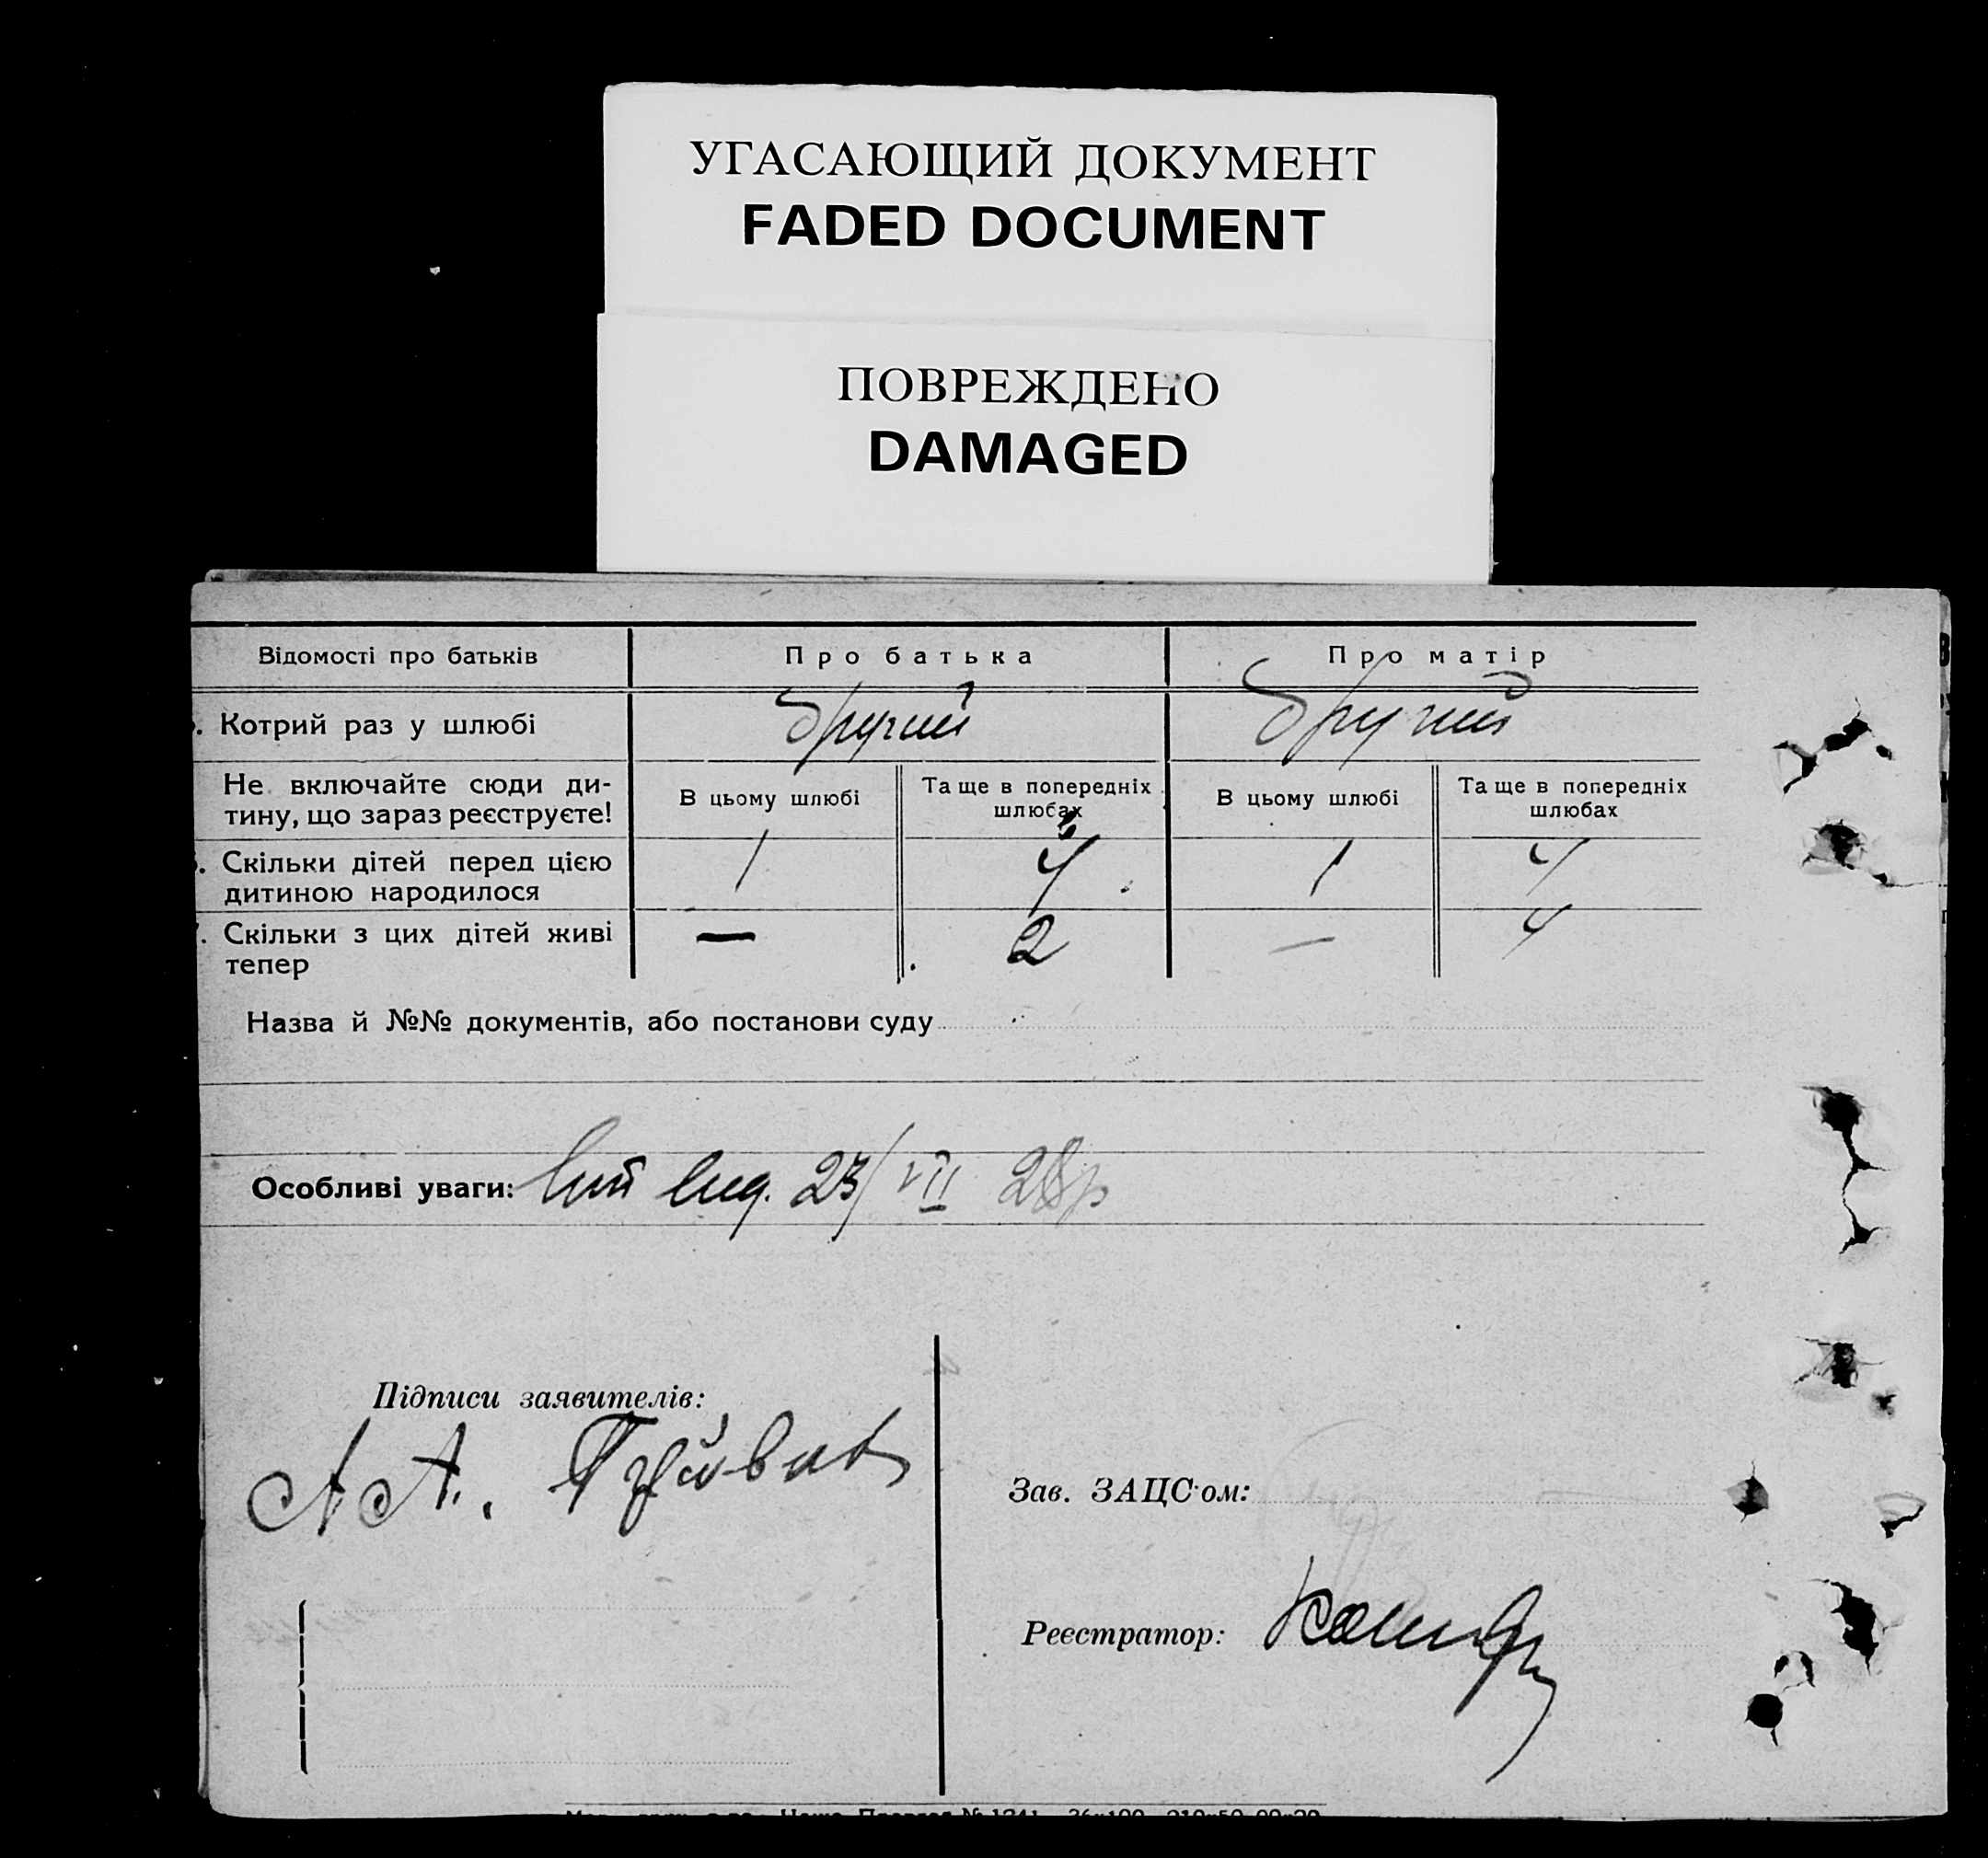 УГАСАЮЩИЙ ДОКУМЕНТ
FADED DOCUMENT
ПОВРЕЖДЕНО
DAMAGED
Відомості про батьків
Про батька
Про матір
. Котрий раз у шлюбі
другий
другий
Не включайте сюди ди-
тину, що зараз реєструєте!
В цьому шлюбі
Та ще в попередніх
шлюбах
В цьому шлюбі
Та ще в попередніх
шлюбах
. Скільки дітей перед цією
дитиною народилося
1
4
1
4
. Скільки з цих дітей живі
тепер
—
2
—
4
Назва й №№ документів, або постанови суду
Особливі уваги: 23/VII 28р
Підписи заявителів:
А.
Зав. ЗАЦС'ом:
Реєстратор: